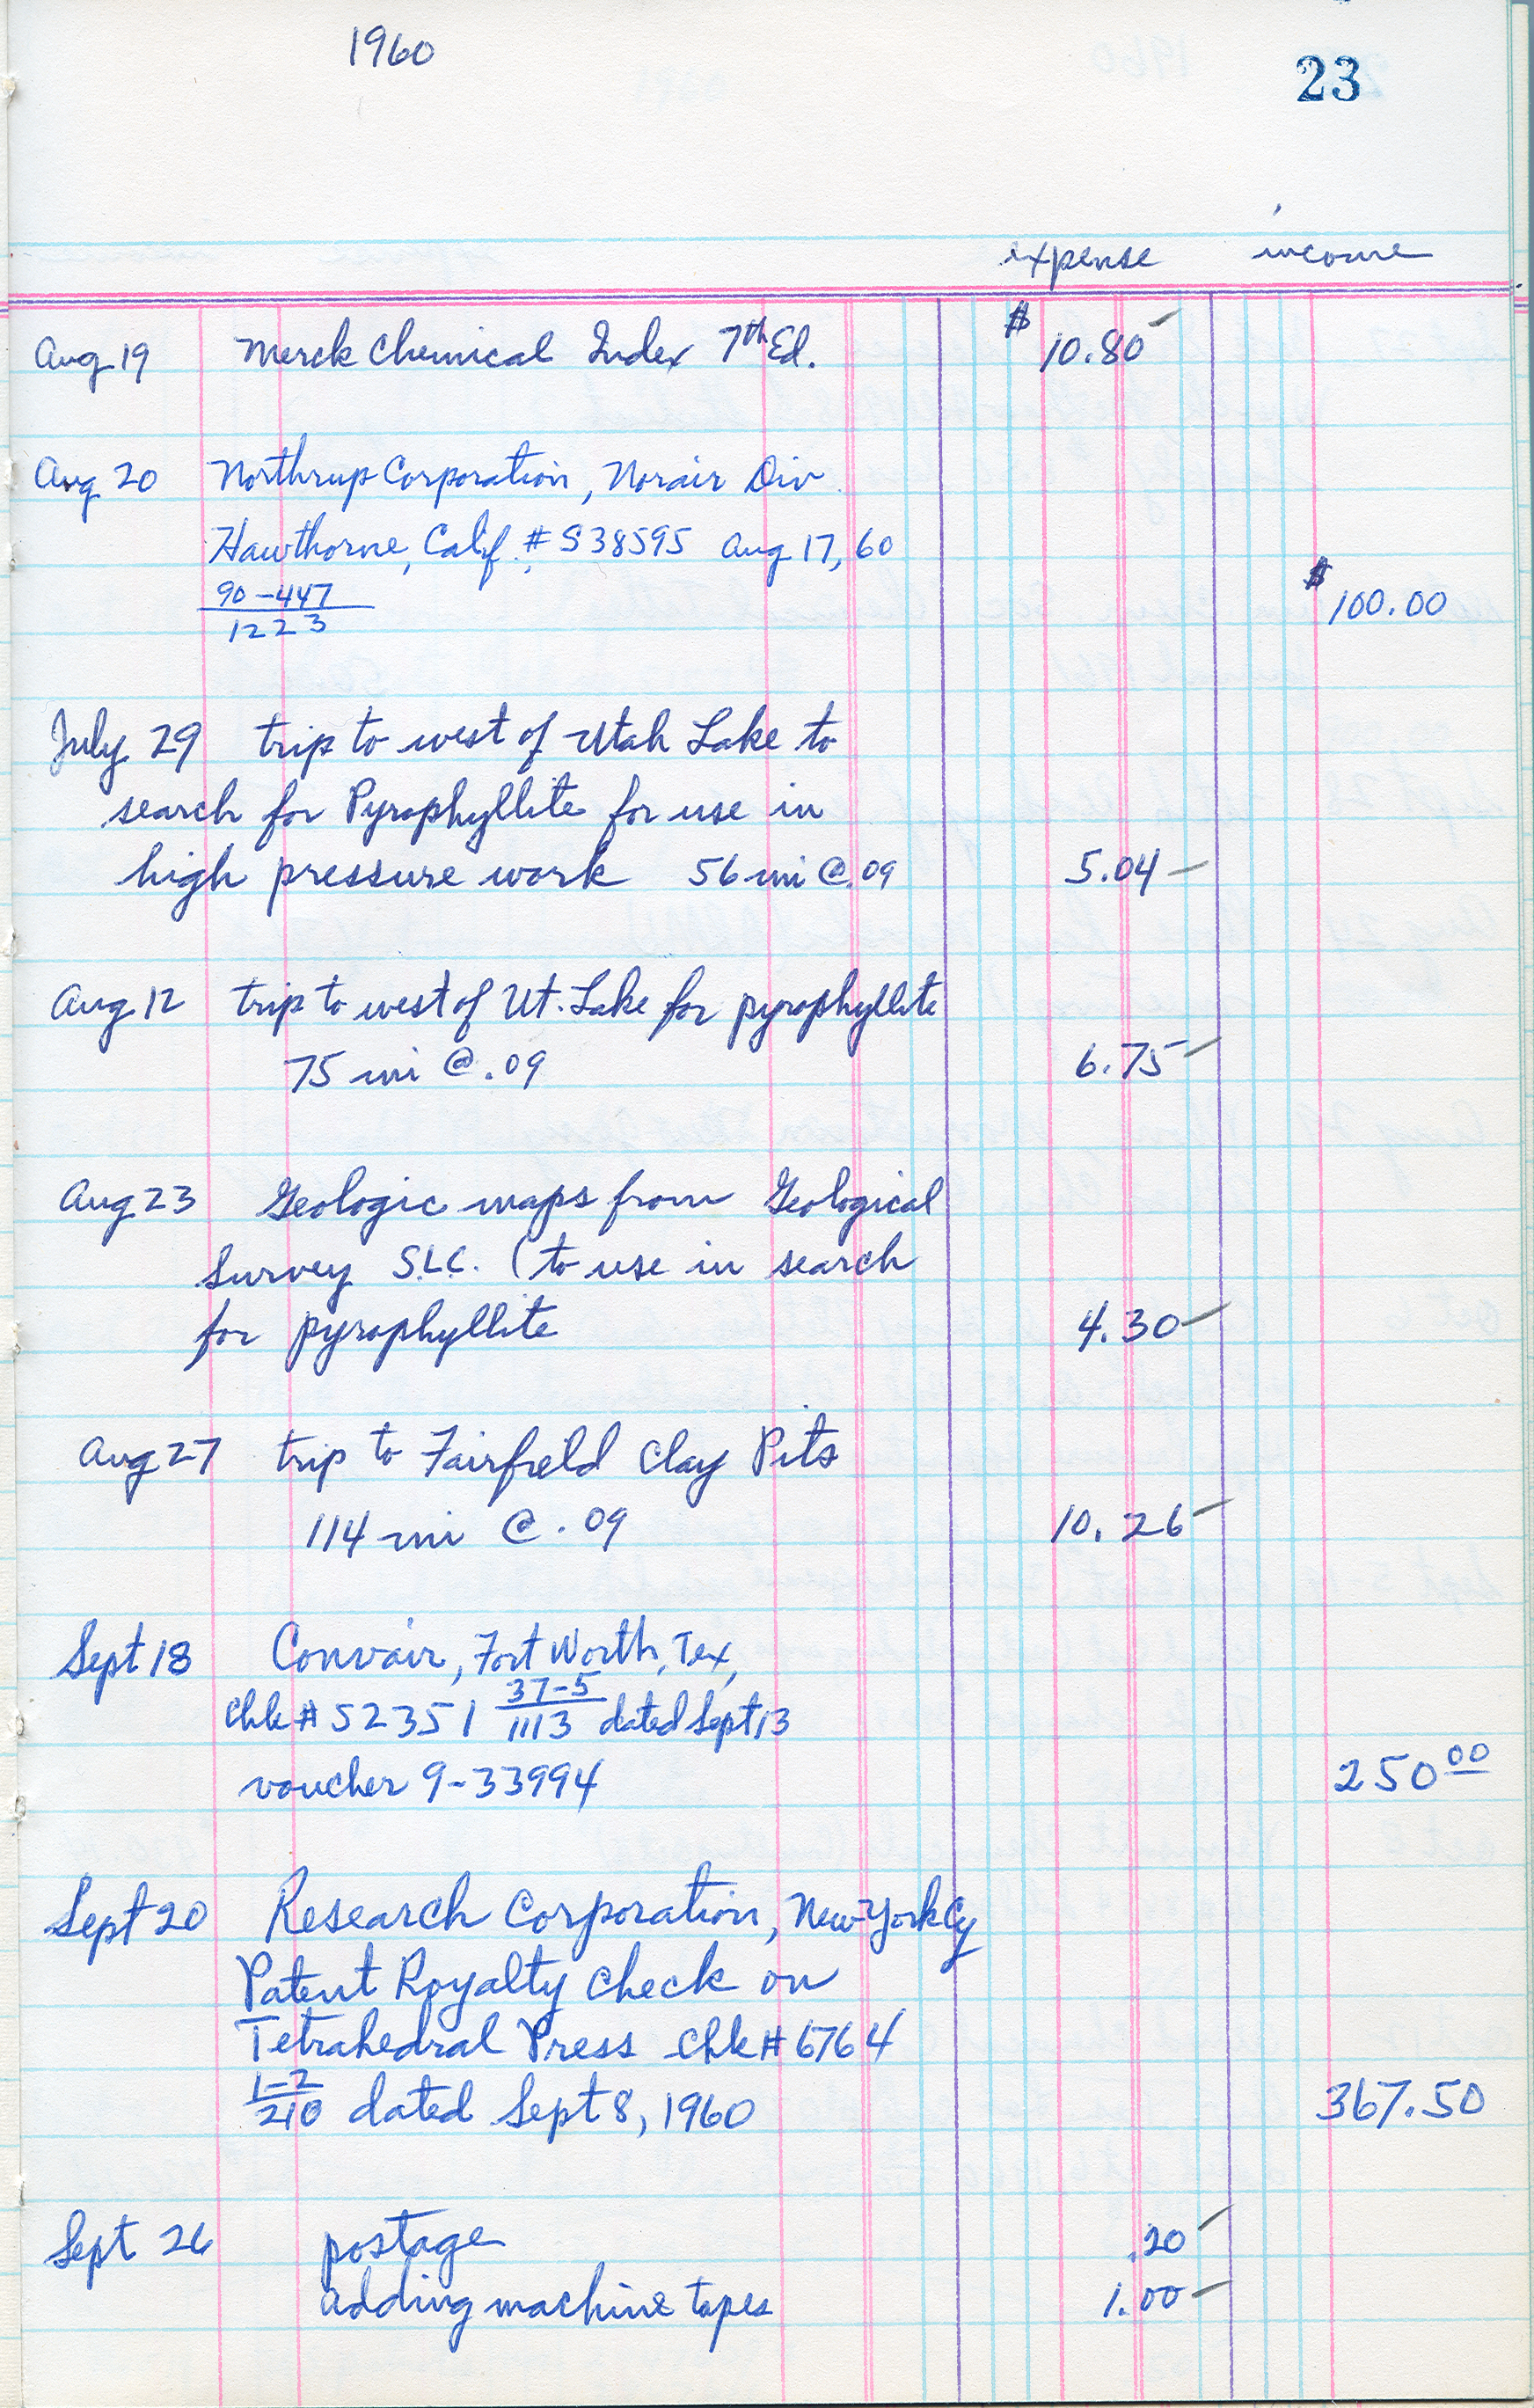 1960
23
expense income
Aug 19 Merck Chemical Index 7th Ed. $10.80
Aug 20 Northrup Corporation, Norair Div.
Hawthorne, Calif. # S38595 Aug 17, 60
90-447
1223
$100.00
July 29 trip to west of Utah Lake to
search for Pyrophyllite for use in
high pressure work 56 mi @ .09 5.04
Aug 12 trip to west of Ut. Lake for pyrophyllite
75 mi @ .09 6.75
Aug 23 Geologic maps from Geological
Survey S.L.C. (to use in search
for pyrophyllite 4.30
Aug 27 trip to Fairfield Clay Pits
114 mi @ .09 10.26
Sept 18 Convair, Fort Worth, Tex,
chk # 52351 37-5/1113 dated Sept 13
voucher 9-33994 250 00
Sept 20 Research Corporation, New York Cy
Patent Royalty check on
Tetrahedral Press chk # 6764
1-2/210 dated Sept 8, 1960 367.50
Sept 26 postage .20
adding machine tapes 1.00